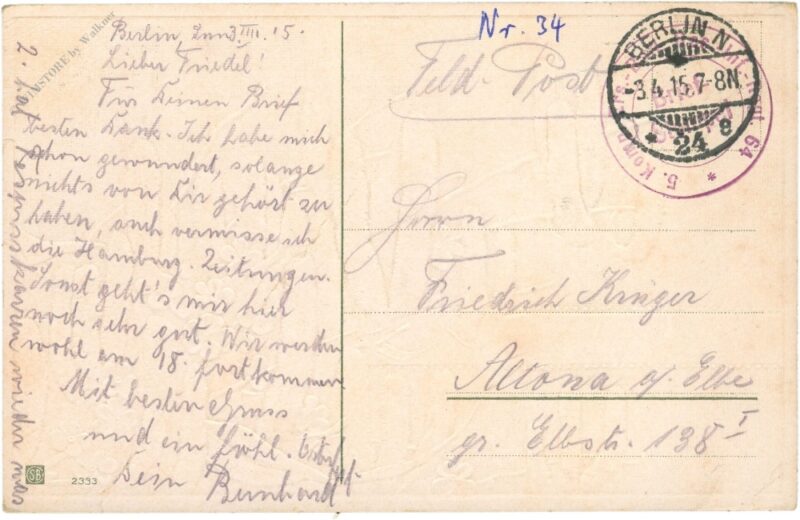 Berlin, den 3. IIII. 15.
Lieber Friedel!
Für Deinen Brief
besten Dank. Ich habe mich
schon gewundert, solange
nichts von Dir gehört zu
haben, auch vermisse ich
die Hamburg. Zeitungen.
Sonst geht's mir hier
noch sehr gut. Wir werden
wohl am 18. fortkommen
Mit besten Gruss
und ein fröhl.
Dein Bernhard
Nr. 34
Feld-Post
Herrn
Friedrich Krüger
Altona a/ Elbe
gr. Elbstr. 138 I
BERLIN N
3.4.15.7-8N
* 24 e
5. Komp. 64 *
STORE by Walkner
SB
2393